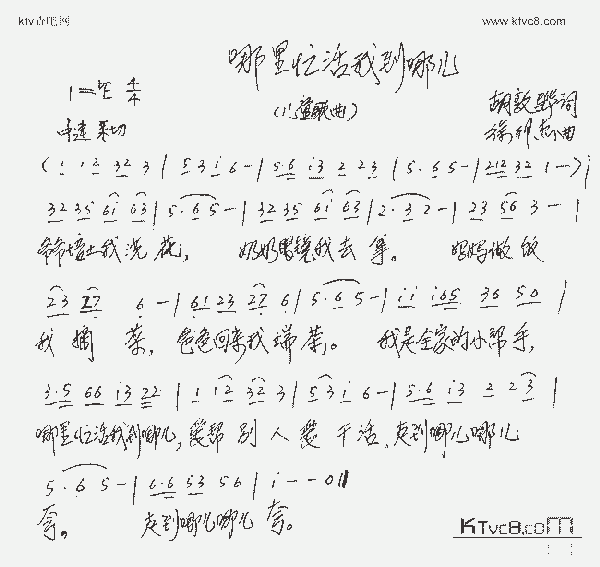 ktv吉吧网 www.ktvc8.com
哪里忙活我到哪儿
(儿童歌曲)
1=♭E 4/4 胡敦骅词
中速 亲切 曲
(1 12 32 3 | 5 3 i 6 - | 5·6 i3 2 23 | 5·65 - | 212 32 1 - ) |
32 35 6i 63 | 5·65 - | 32 35 6i 63 | 2·32 - | 23 56 3 - |
爷爷培土我浇花, 奶奶眼镜我去拿。 妈妈做饭
23 27 6 - | 61 23 27 6 | 5·65 - | ii i65 36 50 |
我摘菜, 爸爸回来我端茶。 我是全家的小帮手,
3·5 66 i3 22 | 1 12 32 3 | 53 i 6 - | 5·6 i3 2 23 |
哪里忙活我到哪儿, 爱帮别人爱干活, 走到哪儿哪儿
5·65 - | 6·6 53 56 | i - - 0 ||
夸。 走到哪儿哪儿夸。
KTvc8.com